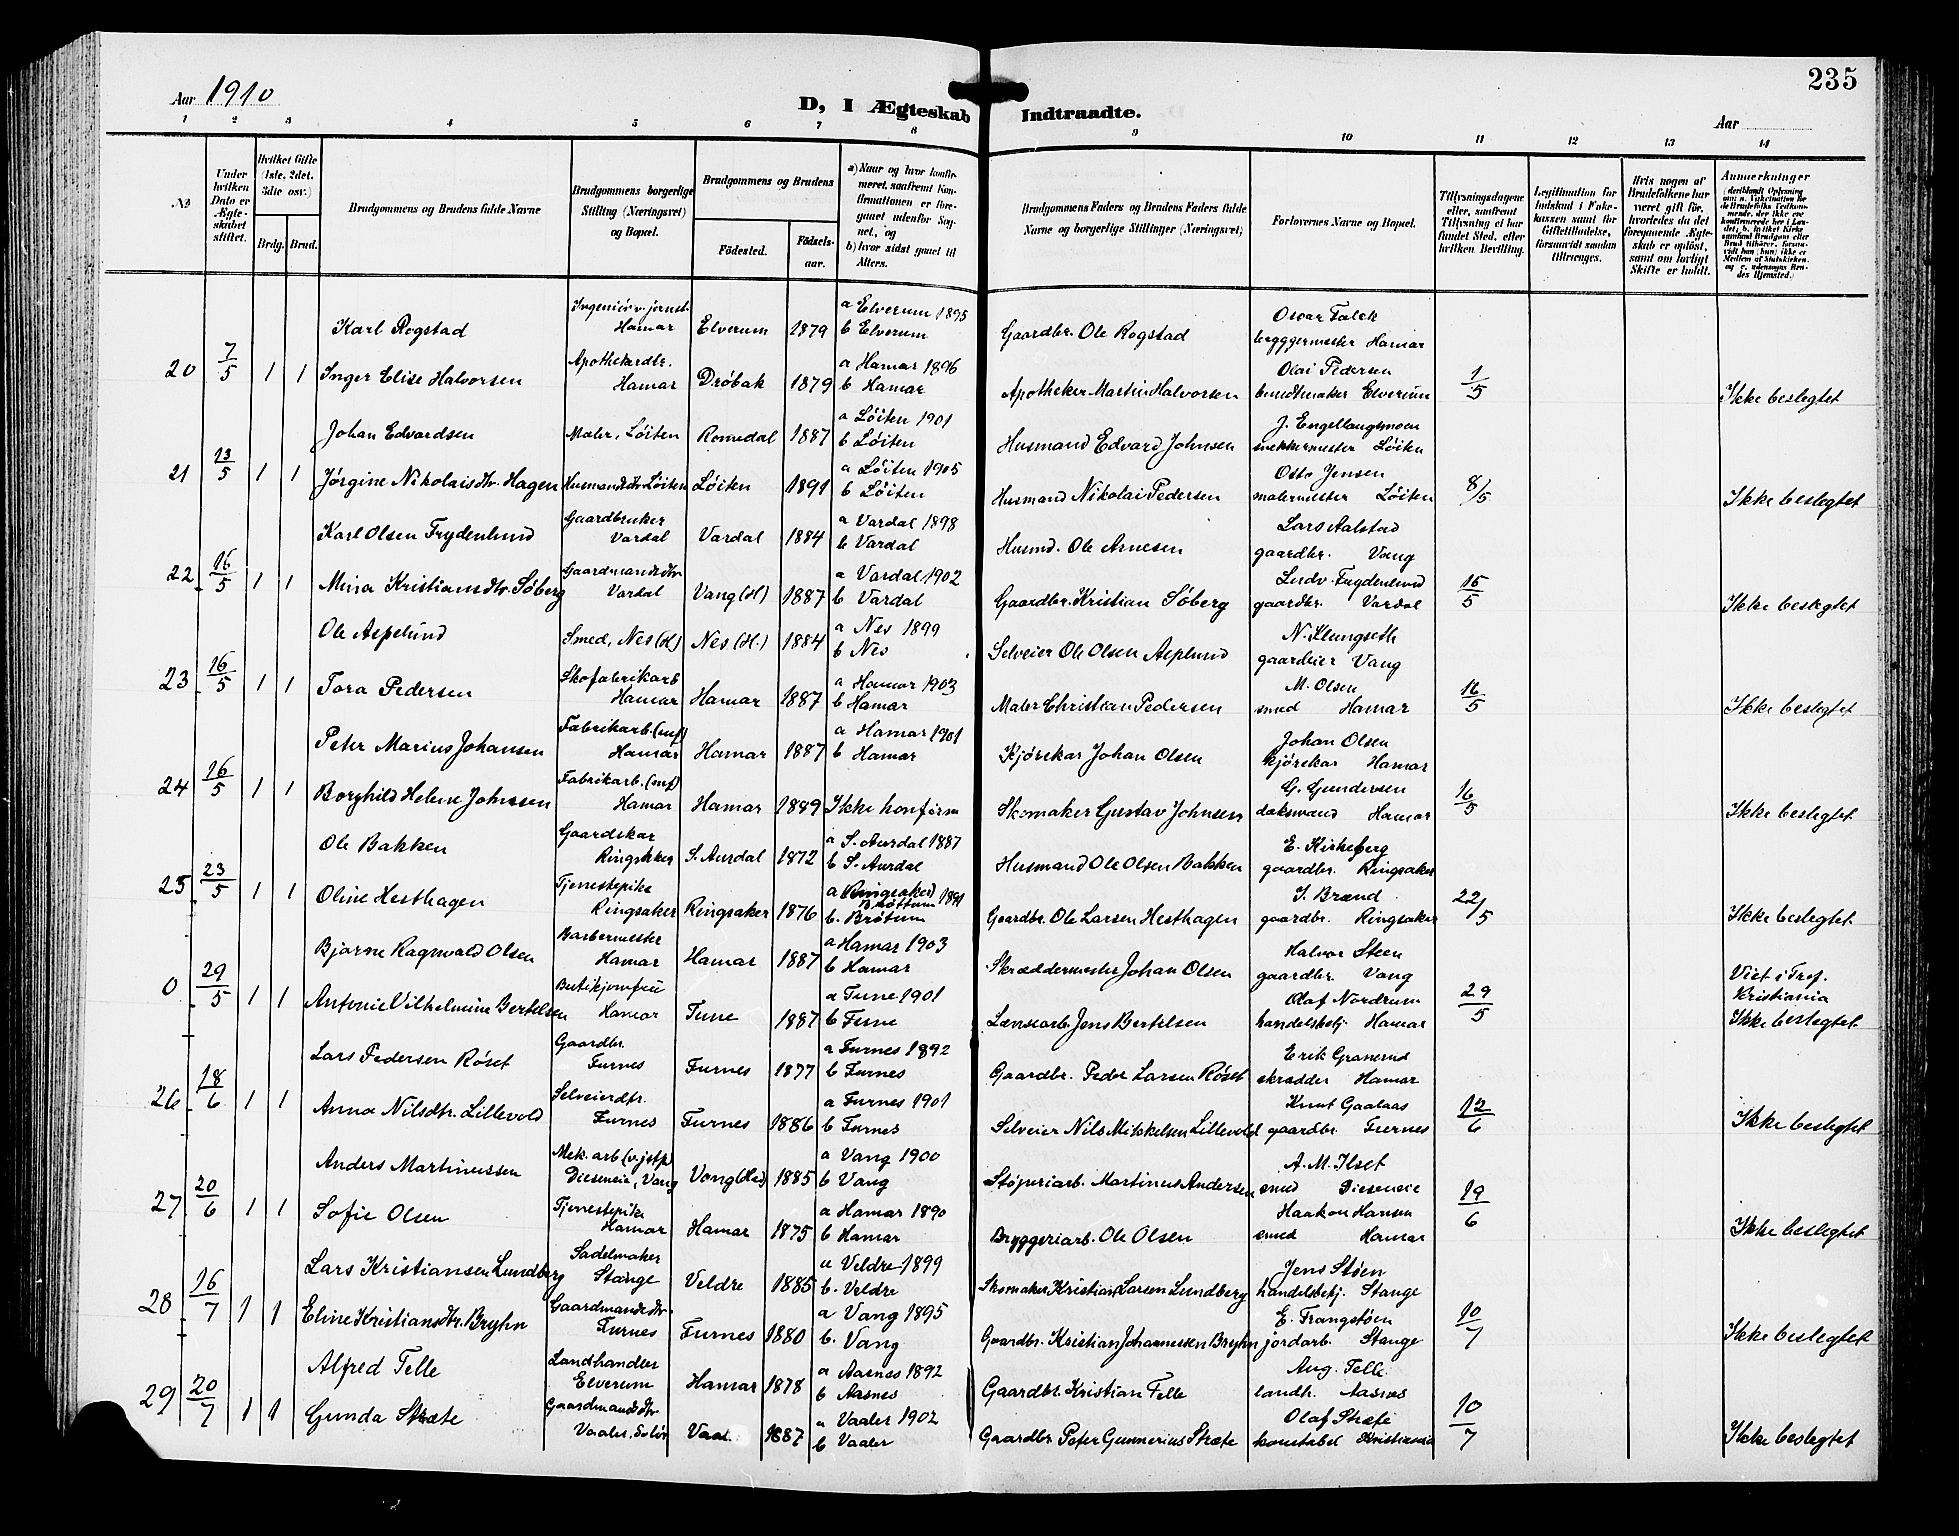 235
Aar 1910
D, I Ægteskab Indtraadte.
Aar
1 2 3 4 5 6 7 8 9 10 11 12 13 14
No
Under hvilken Dato er Ægteskabet stiftet.
Hvilket Gifte (1ste, 2det, 3die osv.)
Brdg. Brud.
Brudgommens og Brudens fulde Navne
Brudgommens borgerlige Stilling (Næringsvei) og Bopæl.
Brudgommens og Brudens
Fødested.
Fødselsaar.
a) Naar og hvor konfirmeret, saafremt Konfirmationen er foregaaet udenfor Sognet, og
b) hvor sidst gaaet til Alters.
Brudgommens Faders og Brudens Faders fulde Navne og borgerlige Stillinger (Næringsvei)
Forlovernes Navne og Bopæl.
Tillysningsdagene eller, saafremt Tillysning ei har fundet Sted, efter hvilken Bevilling.
Legitimation for Indskud i Enkekassen samt for Giftetilladelse, forsaavidt saadan tiltrænges.
Hvis nogen af Brudefolkene har været gift før, hvorledes da det foregaaende Ægteskab er opløst, samt om lovligt Skifte er holdt.
Anmerkninger
Karl Rogstad Hamar Elverum 1879 a Elverum 1895 b Elverum Gaardbr. Ole Rogstad Oscar Falck Hamar
20 7/5 1 1 Inger Elise Halvorsen Apothekerdtr. Hamar Drøbak 1879 a Hamar 1896 b Hamar Apotheker Martin Halvorsen Olai Pedersen bundtmaker Elverum 1/5 Ikke beslegtet
Johan Edvardsen Maler, Løiten Romedal 1887 a Løiten 1901 b Løiten Husmand Edvard Johnsen J. Engellaugsmoen Løiten
21 13/5 1 1 Jørgine Nikolaisdtr. Hagen Husmandsdtr Løiten Løiten 1891 a Løiten 1905 b Løiten Husmand Nikolai Pedersen Otto Jensen malermester Løiten 8/5 Ikke beslegtet
Karl Olsen Frydenlund Gaardbruker Vardal Vardal 1884 a Vardal 1898 b Vardal Husmd. Ole Arnesen Lars Aalstad gaardbr. Vang
22 16/5 1 1 Mina Kristiansdtr. Søberg Gaardmandsdtr Vardal Vang (H) 1887 a Vardal 1902 b Vardal Gaardbr. Kristian Søberg Ludv. Frydenlund gaardbr. Vardal 15/5 Ikke beslegtet
Ole Asplund Smed, Nes (H) Nes (H.) 1884 a Nes 1899 b Nes Selveier Ole Olsen Asplund N. Klungseth gaardeier Vang
23 16/5 1 1 Tora Pedersen Skofabrikarb Hamar Hamar 1887 a Hamar 1903 b Hamar Maler Christian Pedersen M. Olsen smed Hamar 16/5 Ikke beslegtet
Peter Marius Johansen Fabrikarb. Hamar Hamar 1887 a Hamar 1901 b Hamar Kjørekar Johan Olsen Johan Olsen kjørekar Hamar
24 16/5 1 1 Borghild Helene Johnsen Fabrikarb. Hamar Hamar 1889 Ikke konfirm Skomaker Gustav Johnsen G. Gundersen Hamar 16/5 Ikke beslegtet
Ole Bakken Gaardskar Ringsaker S. Aurdal 1872 a S. Aurdal 1887 b S. Aurdal Husmand Ole Olsen Bakken E. Kirkeberg gaardbr. Ringsaker
25 23/5 1 1 Oline Hesthagen Tjenestepike Ringsaker Ringsaker 1876 a (Ringsaker) Brøttum 1891 b. Brøtum Gaardbr. Ole Larsen Hesthagen I. Brænd gaardbr. Ringsaker 22/5 Ikke beslegtet
Bjarne Ragnvald Olsen Barbermester Hamar Hamar 1887 a Hamar 1903 b Hamar Skræddermester Johan Olsen Halvor Steen gaardbr. Vang
0 29/5 1 1 Antonie Vilhelmine Bertelsen Butikjomfru Hamar Tune 1887 a Tune 1901 b Tune Lænsearb. Jens Bertelsen Olaf Nordrum handelsbetj. Hamar 29/5 Viet i Tref. Kristiania Ikke beslegtet
Lars Pedersen Røset Gaardbr. Furnes Furnes 1877 a Furnes 1892 b Furnes Gaardbr. Peder Larsen Røset Erik Granerud skrædder Hamar
26 18/6 1 1 Anna Nilsdtr. Lillevold Selveierdtr. Furnes Furnes 1886 a Furnes 1901 b Furnes Selveier Nils Mikkelsen Lillevold Knut Gaalaas gaardbr. Furnes 12/6 Ikke beslegtet
Anders Martinussen Mek. arb. (v. jstp) Dieseneie, Vang Vang (Hed) 1885 a Vang 1900 b Vang Støperiarb. Martinus Andersen A. M. Ilset smed Dieseneie
27 20/6 1 1 Sofie Olsen Tjenestepike Hamar Hamar 1875 a Hamar 1890 b Hamar Bryggeriarb. Ole Olsen Haakon Hansen smed Hamar 19/6 Ikke beslegtet
Lars Kristiansen Lundberg Sadelmaker Stange Veldre 1885 a Veldre 1899 b. Veldre Skomaker Kristian Larsen Lundberg Jens Støen handelsbetj. Stange
28 16/7 1 1 Eline Kristiansdtr. Bryhn Gaardmandsdtr. Furnes Furnes 1880 a Vang 1895 b. Vang Gaardbr. Kristian Johannessen Bryhn E. Frangstøen jordarb. Stange 10/7 Ikke beslegtet
Alfred Felle Landhandler Elverum Hamar 1878 a Aasnes 1892 b Aasnes Gaardbr. Kristian Felle Aug. Felle landh. Aasnes
29 20/7 1 1 Gunda Stræte Gaardmandsdtr Vaaler, Solør Vaal. 1887 a Vaaler 1902 b Vaaler Gaardbr Peter Gunnerius Stræte Olaf Stræte konstabel Kristiania 10/7 Ikke beslegtet